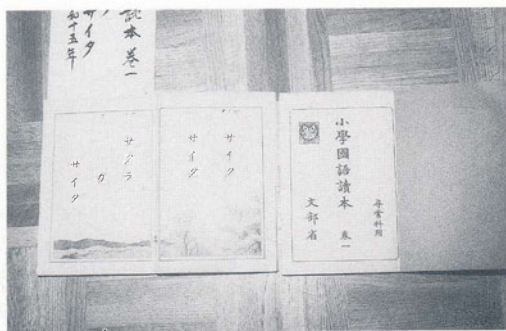 読本 巻一
サイタ
和十五年
尋常科用
小學國語讀本 巻一
文部省
サイタ
サイタ
サクラ
ガ
サイタ